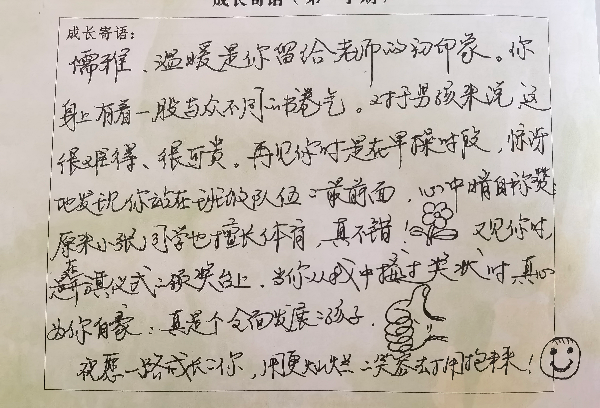 成长寄语(第一学期)
成长寄语:
儒雅、温暖是你留给老师的初印象。你
身上有着一股与众不同的书卷气。对于男孩来说,这
很难得、很可贵。再见你时是在早操时段,惊讶
地发现你站在班级队伍的最前面,心中暗自称赞
原来小张同学也擅长体育,真不错!又见你时,
是在升旗仪式的颁奖台上,当你从我中接过奖状时,真心
为你自豪:真是个全面发展的孩子.
祝愿一路成长的你,用更灿烂的笑容去拥抱未来!